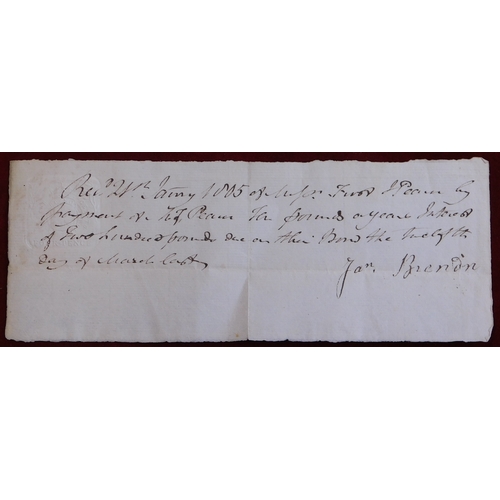 Rec.d 21st Janry 1805 of Messrs J Pearn by
payment of Pearn Ten pounds a years Interest
of Two hundred pounds due on their Bond the twelfth
day of March last
Jas. Brendon